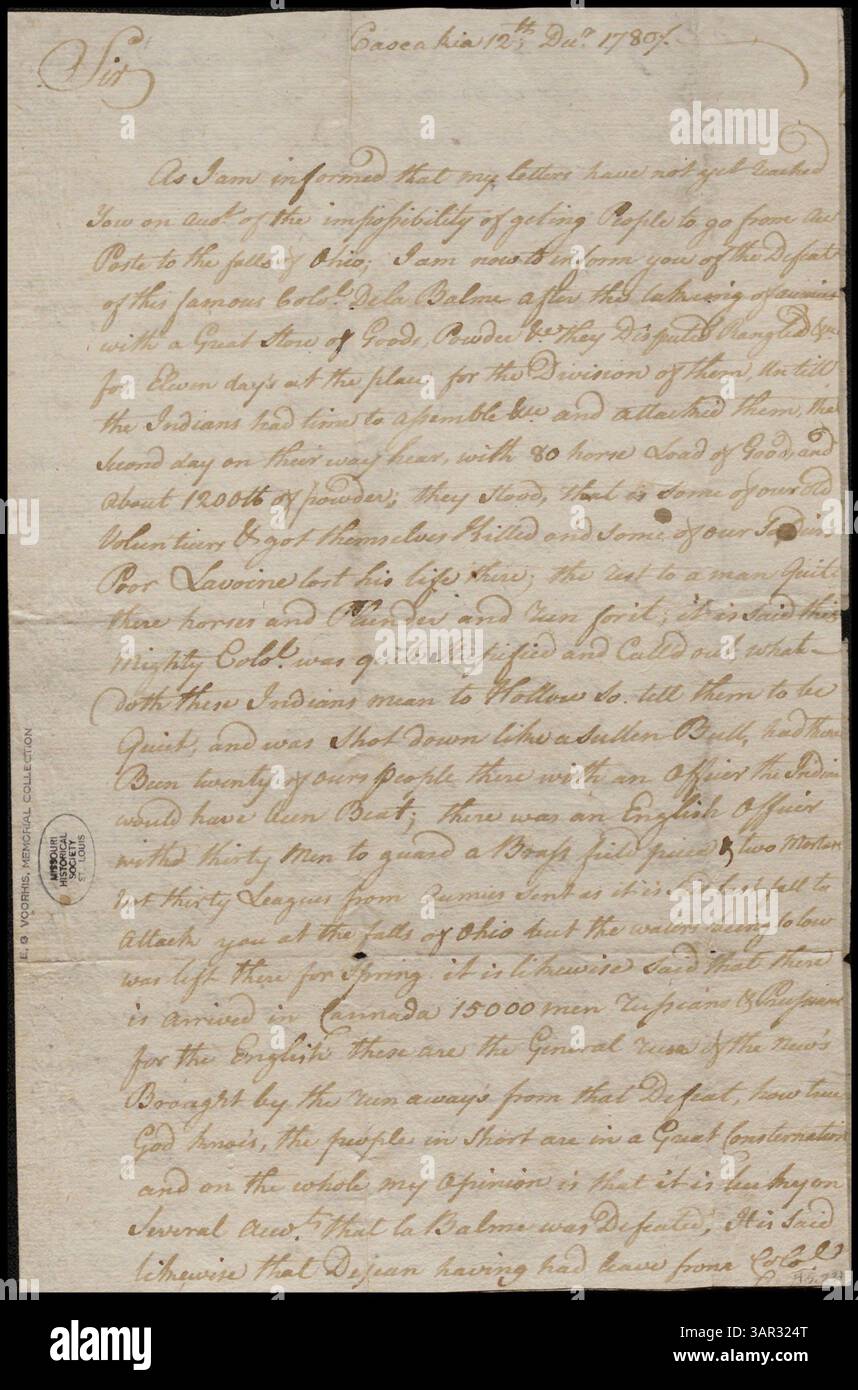 Cascakia 12th Decr 1780/.
Sir
As I am informed that my letters have not yet reached
You on accot of the impossibility of geting People to go from au
Poste to the falls of Ohio; I am now to inform you of the Defeat
of this famous Colol. De la Balme after the takeing of aumies
with a Great Store of Goods, Powder &c they Disputed Rangled &c
for Elven day's at the place for the Division of them, Untill
the Indians had time to assemble &c and attacked them, the
second day on their way hear, with 80 horse Load of Goods, and
about 1200lb of powder; they stood, that is some of our old
Voluntiers & got themselves Killed and some of our
Poor Lavoine lost his life there; the rest to a man Quit
there horses and Plunder and run for it; it is said this
Mighty Colol. was quite and Call'd out what
doth these Indians mean to Hollow so. tell them to be
Quiet, and was Shot down like a Sullen Bull, had there
Been twenty of ours people there with an Officer the Indians
would have been Beat; there was an English Officer
with thirty Men to guard a Brass field piece & two Mortars
not thirty Leagues from aumies sent as it is Said last fall to
Attack you at the falls of Ohio but the waters being so low
was left there for Spring. it is likewise said that there
is arrived in Cannada 15000 men russians & Prussians
for the English these are the General run of the new's
Brought by the run aways from that Defeat, how true
God knois, the people in short are in a Great Consternation
and on the whole my Opinion is that it is lucky on
Several Accts. that la Balme was Defeated, It is Said
likewise that Dejean having had leave from Colol
E. G. VOORHIS, MEMORIAL COLLECTION
MISSOURI
HISTORICAL
SOCIETY
ST. LOUIS
a
alamy
alamy
Image ID: 3AR324T
www.alamy.com